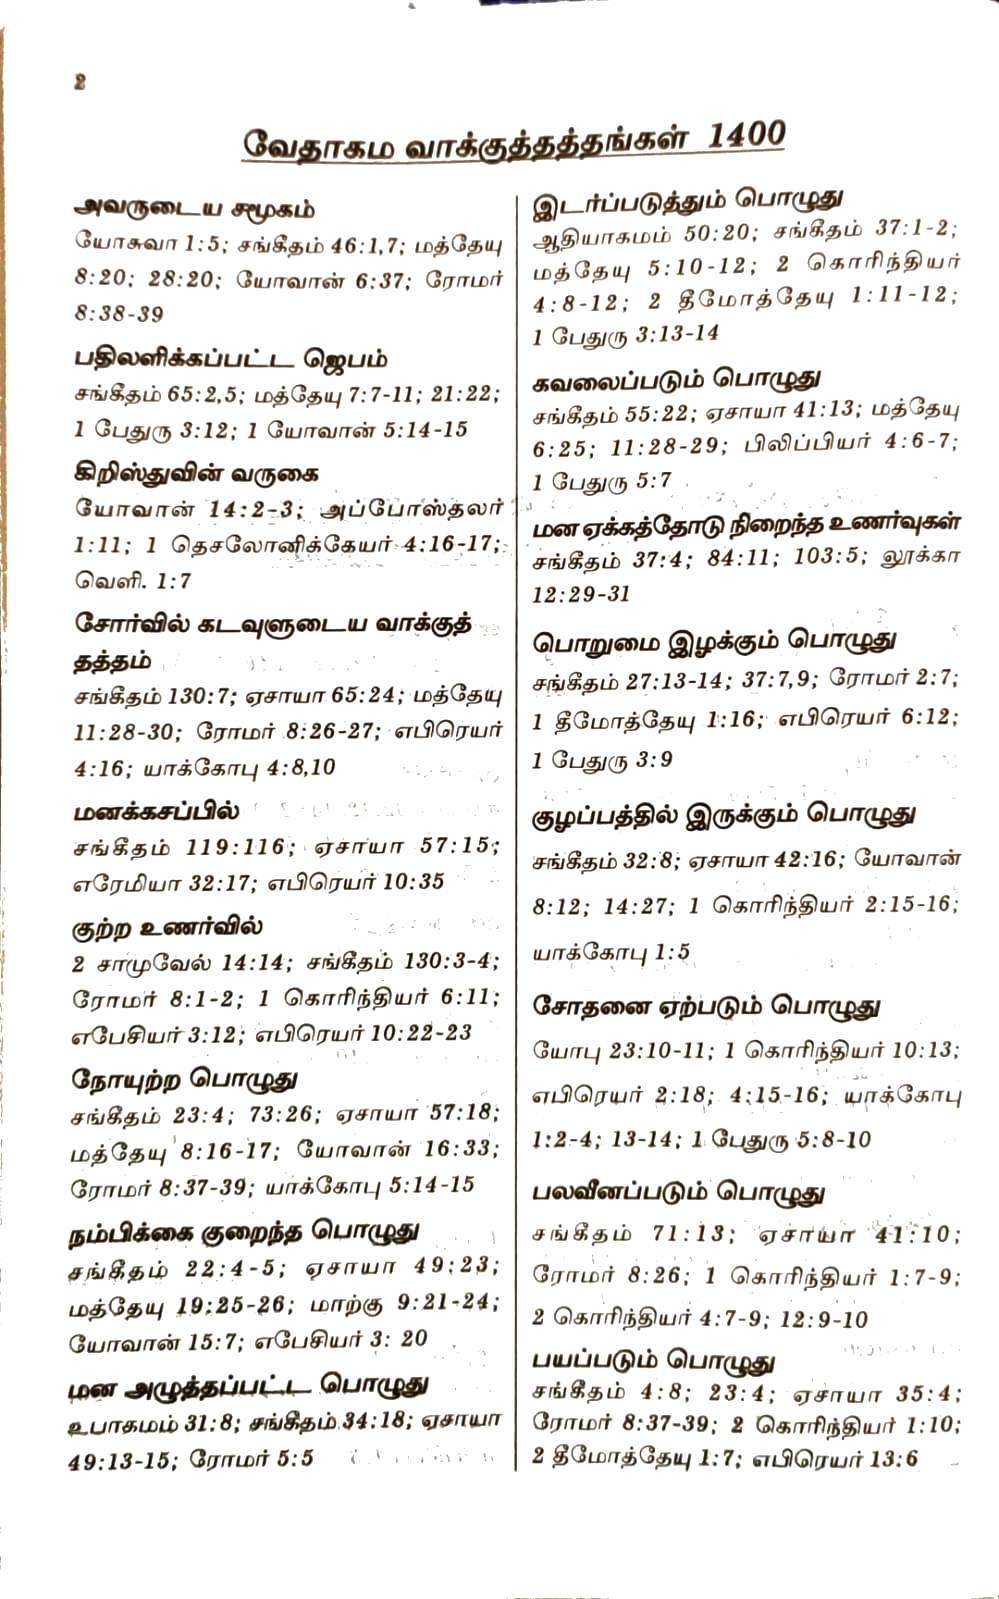 2
வேதாகம வாக்குத்தத்தங்கள் 1400
அவருடைய சமூகம்
யோசுவா 1:5; சங்கீதம் 46:1,7; மத்தேயு
8:20; 28:20; யோவான் 6:37; ரோமர்
8:38-39
பதிலளிக்கப்பட்ட ஜெபம்
சங்கீதம் 65:2,5; மத்தேயு 7:7-11; 21:22;
1 பேதுரு 3:12; 1 யோவான் 5:14-15
கிறிஸ்துவின் வருகை
யோவான் 14:2-3; அப்போஸ்தலர்
1:11; 1 தெசலோனிக்கேயர் 4:16-17;
வெளி. 1:7
சோர்வில் கடவுளுடைய வாக்குத்
தத்தம்
சங்கீதம் 130:7; ஏசாயா 65:24; மத்தேயு
11:28-30; ரோமர் 8:26-27; எபிரெயர்
4:16; யாக்கோபு 4:8,10
மனக்கசப்பில்
சங்கீதம் 119:116; ஏசாயா 57:15;
எரேமியா 32:17; எபிரெயர் 10:35
குற்ற உணர்வில்
2 சாமுவேல் 14:14; சங்கீதம் 130:3-4;
ரோமர் 8:1-2; 1 கொரிந்தியர் 6:11;
எபேசியர் 3:12; எபிரெயர் 10:22-23
நோயுற்ற பொழுது
சங்கீதம் 23:4; 73:26; ஏசாயா 57:18;
மத்தேயு 8:16-17; யோவான் 16:33;
ரோமர் 8:37-39; யாக்கோபு 5:14-15
நம்பிக்கை குறைந்த பொழுது
சங்கீதம் 22:4-5; ஏசாயா 49:23;
மத்தேயு 19:25-26; மாற்கு 9:21-24;
யோவான் 15:7; எபேசியர் 3: 20
மன அழுத்தப்பட்ட பொழுது
உபாகமம் 31:8; சங்கீதம் 34:18; ஏசாயா
49:13-15; ரோமர் 5:5
இடர்ப்படுத்தும் பொழுது
ஆதியாகமம் 50:20; சங்கீதம் 37:1-2;
மத்தேயு 5:10-12; 2 கொரிந்தியர்
4:8-12; 2 தீமோத்தேயு 1:11-12;
1 பேதுரு 3:13-14
கவலைப்படும் பொழுது
சங்கீதம் 55:22; ஏசாயா 41:13; மத்தேயு
6:25; 11:28-29; பிலிப்பியர் 4:6-7;
1 பேதுரு 5:7
மன ஏக்கத்தோடு நிறைந்த உணர்வுகள்
சங்கீதம் 37:4; 84:11; 103:5; லூக்கா
12:29-31
பொறுமை இழக்கும் பொழுது
சங்கீதம் 27:13-14; 37:7,9; ரோமர் 2:7;
1 தீமோத்தேயு 1:16; எபிரெயர் 6:12;
1 பேதுரு 3:9
குழப்பத்தில் இருக்கும் பொழுது
சங்கீதம் 32:8; ஏசாயா 42:16; யோவான்
8:12; 14:27; 1 கொரிந்தியர் 2:15-16;
யாக்கோபு 1:5
சோதனை ஏற்படும் பொழுது
யோபு 23:10-11; 1 கொரிந்தியர் 10:13;
எபிரெயர் 2:18; 4:15-16; யாக்கோபு
1:2-4; 13-14; 1 பேதுரு 5:8-10
பலவீனப்படும் பொழுது
சங்கீதம் 71:13; ஏசாயா 41:10;
ரோமர் 8:26; 1 கொரிந்தியர் 1:7-9;
2 கொரிந்தியர் 4:7-9; 12:9-10
பயப்படும் பொழுது
சங்கீதம் 4:8; 23:4; ஏசாயா 35:4;
ரோமர் 8:37-39; 2 கொரிந்தியர் 1:10;
2 தீமோத்தேயு 1:7; எபிரெயர் 13:6